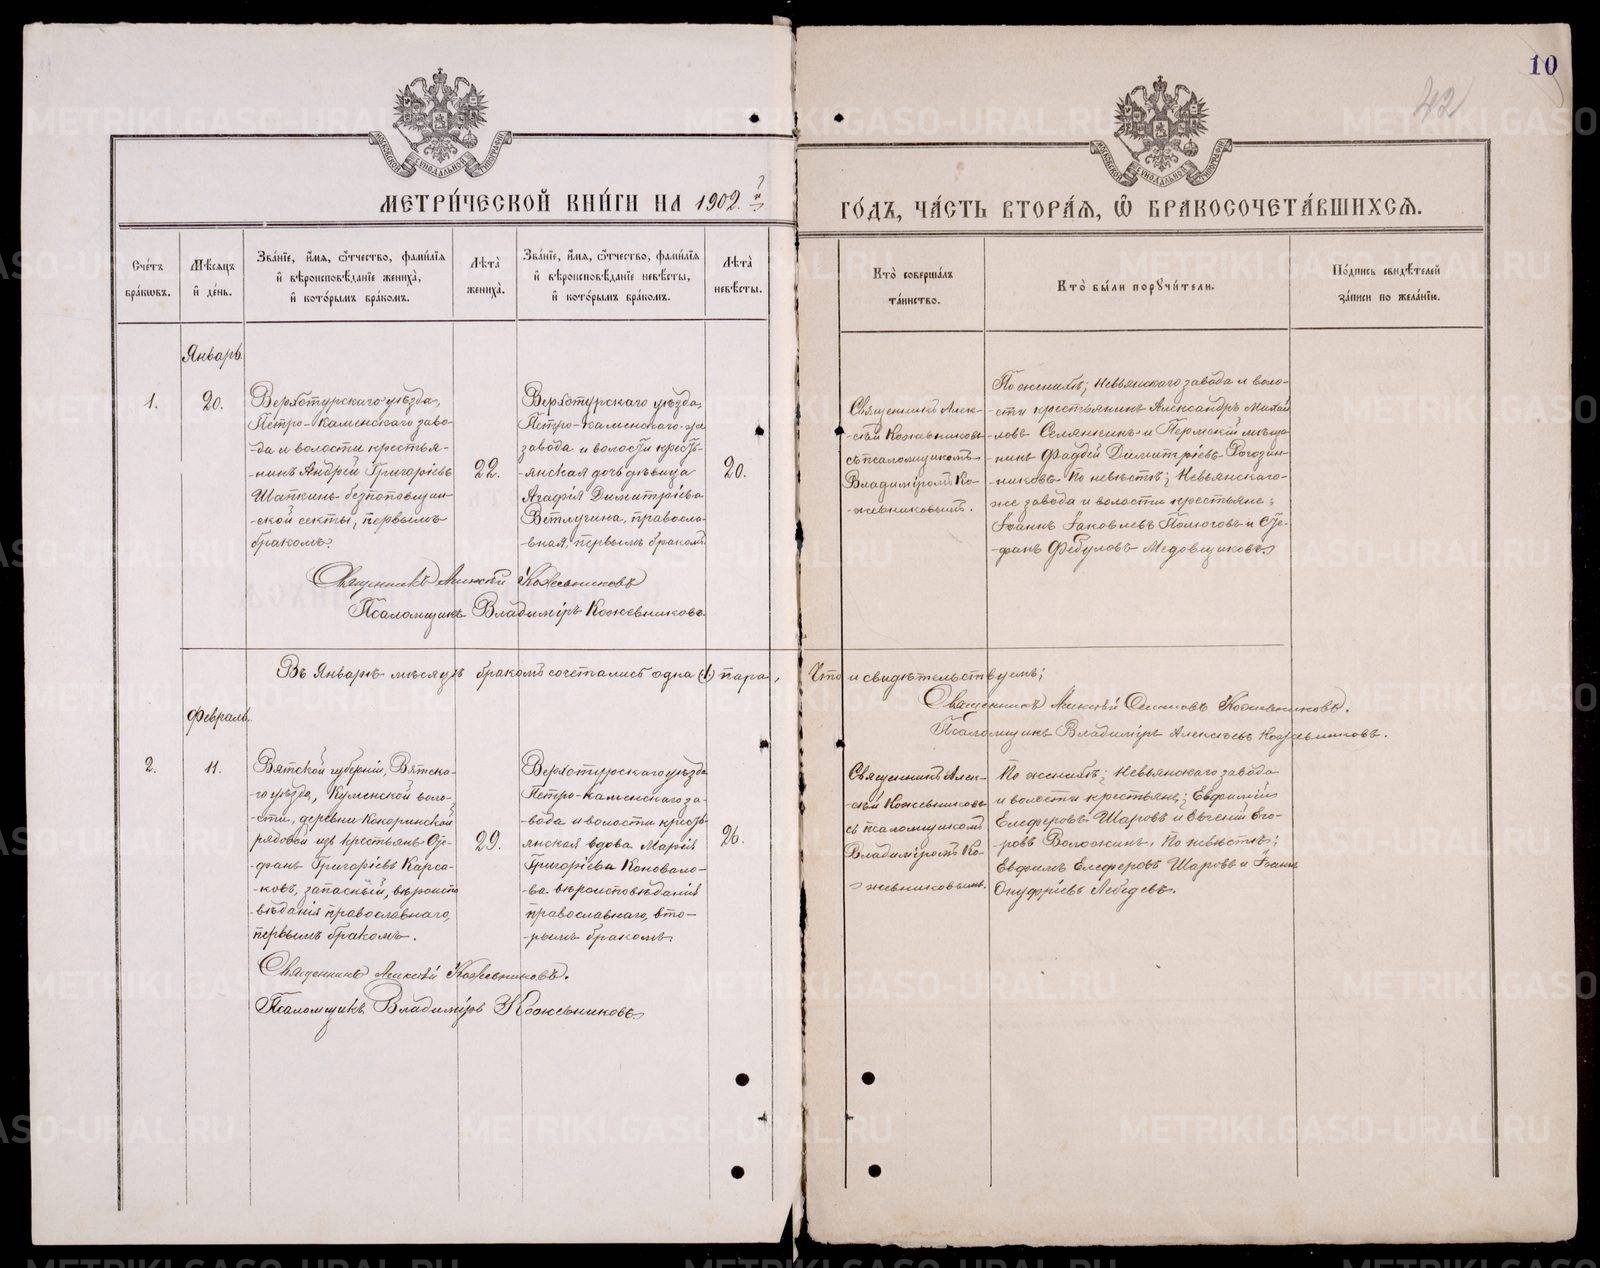 10
42
МОСКОВСКОЙ СѴНОДАЛЬНОЙ ТИПОГРАФІИ
МОСКОВСКОЙ СѴНОДАЛЬНОЙ ТИПОГРАФІИ
МЕТРИ́ЧЕСКОЙ КНИ́ГИ НА 1902. й
ГО́ДЪ, ЧА́СТЬ ВТОРА́Ѧ, Ѡ҆ БРАКОСОЧЕТА́ВШИХСѦ.
Сче́тъ
бра́кѡвъ.
Мѣ́сѧцъ
и҆ де́нь.
Зва́нїе, и҆́мѧ, ѻ҆́тчество, фами́лїѧ
и҆ вѣроисповѣ́данїе жениха̀,
и҆ кото́рымъ бра́комъ.
Лѣ́та
жениха̀.
Зва́нїе, и҆́мѧ, ѻ҆́тчество, фами́лїѧ
и҆ вѣроисповѣ́данїе невѣ́сты,
и҆ кото́рымъ бра́комъ.
Лѣ́та
невѣ́сты.
Кто̀ соверша́лъ
та́инство.
Кто̀ бы́ли порꙋчи́тели.
По́дпись свидѣ́телей
за́писи по жела́нїю.
Январь
1.
20.
Верхотурскаго уѣзда,
Петро-Каменскаго заво-
-да и волости крестья-
-нинъ Андрей Григорьевъ
Шапкинъ безпоповщин-
-ской секты, первымъ
бракомъ.
22.
Верхотурскаго уѣзда,
Петро-Каменскаго-же
завода и волости кресть-
-янская дочь дѣвица
Агафія Димитріева
Ветлугина, правосла-
-вная, первымъ бракомъ.
20.
Священникъ Алек-
-сѣй Кожевниковъ
съ псаломщикомъ
Владиміромъ Ко-
-жевниковымъ.
По женихѣ; Невьянскаго завода и воло-
-сти крестьянинъ Александръ Михай
-ловъ Селянкинъ и Пермскій мѣща
-нинъ Фаддей Димитріевъ Рогозин-
-никовъ. По невѣстѣ; Невьянскаго-
-же завода и волости крестьяне;
Іоаннъ Іаковлевъ Полюговъ и Сте-
-фанъ Федуловъ Медовщиковъ.
Священникъ Алексѣй Кожевниковъ
Псаломщикъ Владиміръ Кожевниковъ
Въ Январѣ мѣсяцѣ бракомъ сочетались одна (1) пара, Что и свидѣтельствуемъ;
Священникъ Алексѣй Кожевниковъ.
Псаломщикъ Владиміръ Алексѣевъ Кожевниковъ.
Февраль.
2.
11.
Вятской губерніи, Вятска-
-го уѣзда, Куменской воло-
-сти, деревни Кокоринской
рядовой изъ крестьянъ Сте-
-фанъ Григорьевъ Корса-
-ковъ, запасный, вѣроиспо
-вѣданія православнаго,
первымъ бракомъ.
29.
Верхотурскаго уѣзда
Петро-Каменскаго за-
-вода и волости кресть-
янская вдова Марія
Григорьева Коновало-
-ва вѣроисповѣданія
православнаго, вто-
-рымъ бракомъ.
26.
Священникъ Алек-
-сѣй Кожевниковъ
съ псаломщикомъ
Владиміромъ Ко-
-жевниковымъ.
По женихѣ; Невьянскаго завода
и волости крестьяне; Евфимій
Елеферовъ Шаровъ и Евгеній Его-
-ровъ Воложинъ. По невѣстѣ;
Евфимъ Елеферовъ Шаровъ и Іоаннъ
Онуфріевъ Лебедевъ.
Священникъ Алексѣй Кожевниковъ.
Псаломщикъ Владиміръ Кожевниковъ
METRIKI.GASO-URAL.RU